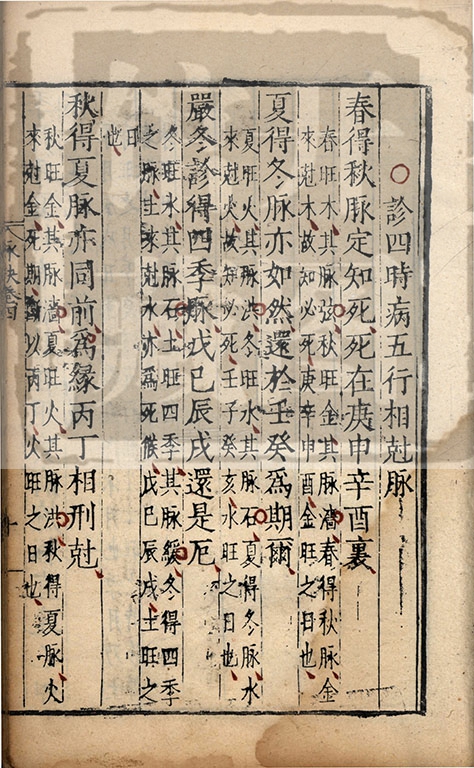 ○診四時病五行相尅脉
春得秋脉定知死死在庚申辛酉裏
春旺木其脉弦秋旺金其脉濇春得秋脉金
來尅木故知必死庚辛申酉金旺之日也
夏得冬脉亦如然還於壬癸爲期爾
夏旺火其脉洪冬旺水其脉石夏得冬脉水
來尅火故知必死壬子癸亥水旺之日也
嚴冬診得四季脉戊巳辰戌還是厄
冬旺水其脉石土旺四季其脉緩冬得四季
之脉土來尅水亦爲死候戊巳辰戌土旺之
日
也
秋得夏脉亦同前爲緣丙丁相刑尅
秋旺金其脉濇夏旺火其脉洪秋得夏脉火
來尅金死期以丙丁火旺之日也
脉訣卷四